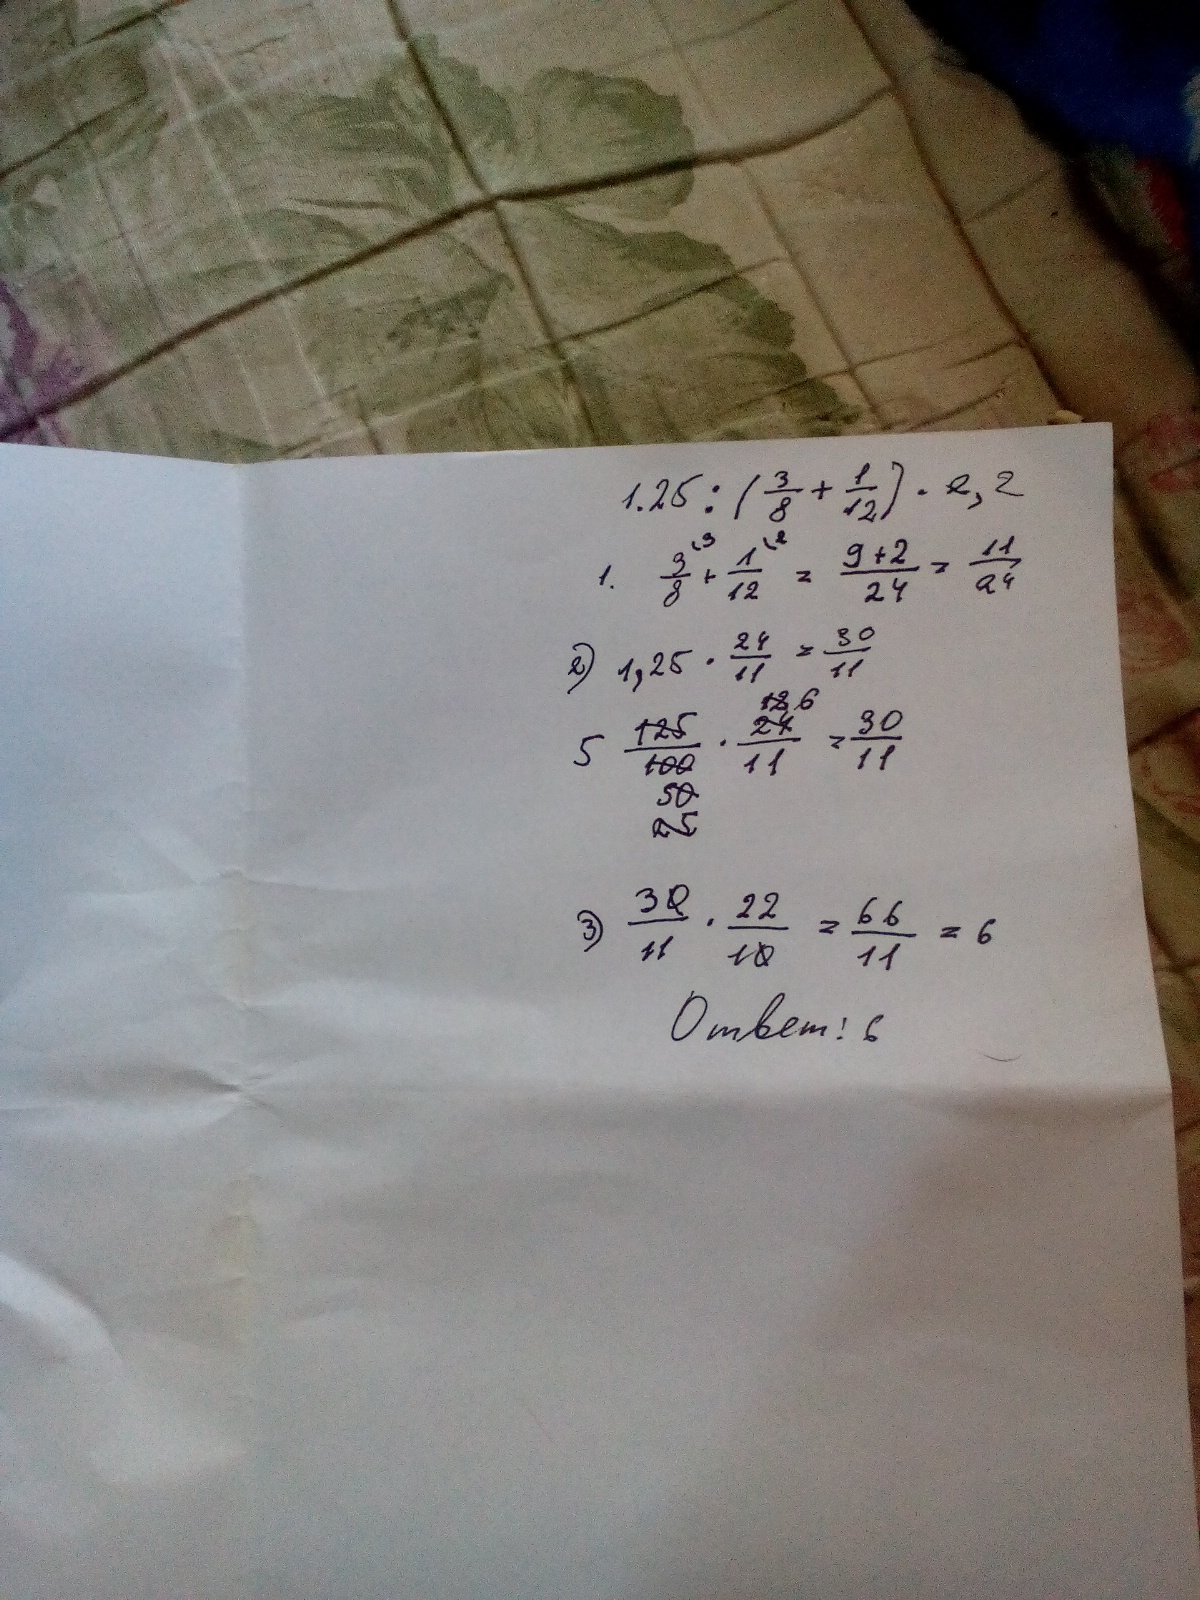 1.25 : (3/8 + 1/12) · 2,2
1. 3/8 \3 + 1/12 \2 = 9+2/24 = 11/24
2) 1,25 · 24/11 = 30/11
12 6
5 125/100 · 24/11 = 30/11
50
25
3) 30/11 · 22/10 = 66/11 = 6
Ответ: 6